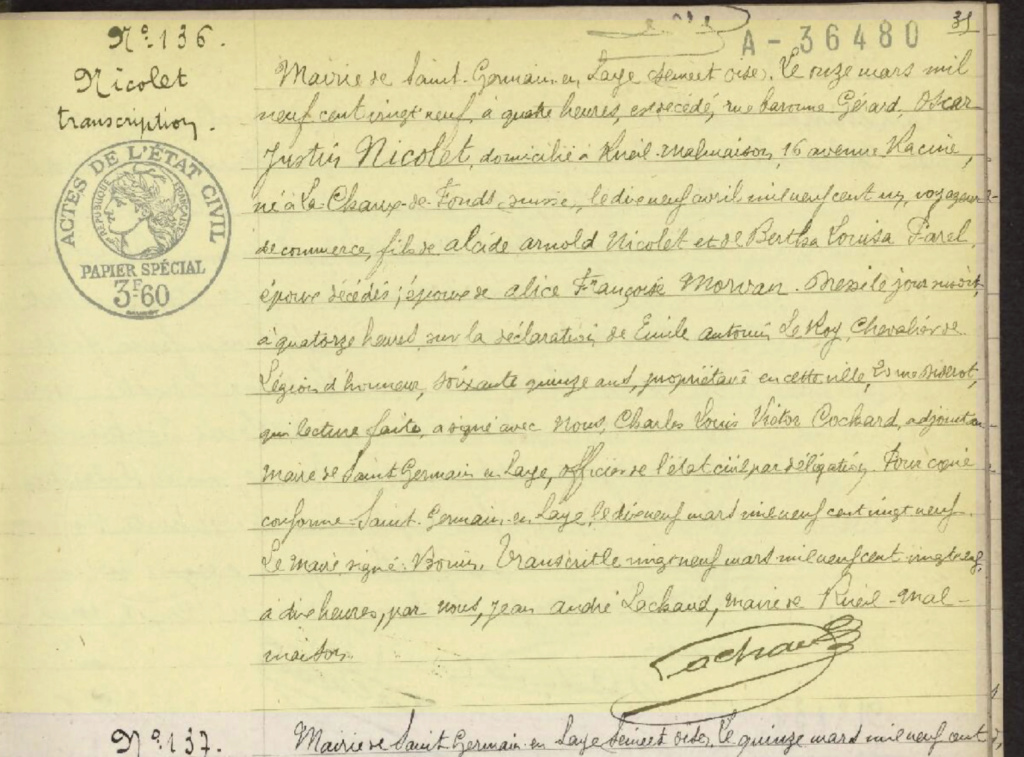 31
A-36480
N° 136.
Nicolet
transcription.
ACTES DE L'ÉTAT CIVIL
RÉPUBLIQUE FRANÇAISE
PAPIER SPÉCIAL
3F60
Mairie de Saint-Germain-en-Laye (Seine et Oise). Le onze mars mil
neuf cent vingt neuf, à quatre heures, est décédé, rue baronne Gérard, Oscar
Justin Nicolet, domicilié à Rueil-Malmaison, 16 avenue Racine,
né à La Chaux-de-Fonds, suisse, le dix neuf avril mil neuf cent un, voyageur
de commerce, fils de Alcide Arnold Nicolet et de Bertha Louisa Farel,
époux décédés; époux de Alice Françoise Morvan. Dressé le jour susdit,
à quatorze heures, sur la déclaration de Emile Antonin Le Roy, Chevalier de
Légion d'honneur, soixante quinze ans, propriétaire en cette ville, rue Diderot,
qui lecture faite, a signé avec Nous, Charles Louis Victor Cochard, adjoint au
maire de Saint Germain en Laye, officier de l'état civil par délégation. Pour copie
conforme Saint-Germain-en-Laye, le dix neuf mars mil neuf cent vingt neuf.
Le Maire, signé: Transcrit le vingt neuf mars mil neuf cent vingt neuf,
à dix heures, par nous, Jean André Lachaud, maire de Rueil-Mal-
maison.
Lachaud
N° 137.
Mairie de Saint Germain-en-Laye (Seine et Oise). Le quinze mars mil neuf cent